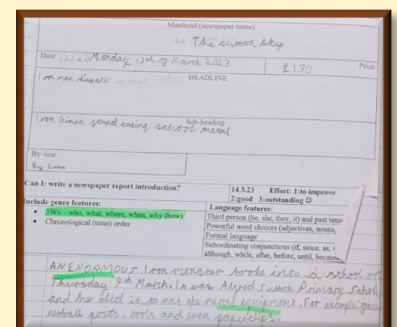 Masthead (newspaper name)
The curson sky
Date 13.3.23 Monday 13th of March 2023 £1.70 Price
Iron man disaster HEADLINE
Sub-heading
Iron Giant found eating school metal
By-line
By
Can I: write a newspaper report introduction?
14.3.23 Effort: 1:to improve
2:good 3:outstanding ☺
Include genre features:
5Ws – who, what, where, when, why (how)
Chronological (time) order
Language features:
Third person (he, she, they, it) and past tense
Powerful word choices (adjectives, nouns,
Formal language
Subordinating conjunctions (if, since, as,
although, while, after, before, until, because,
AN ENORMOUS Iron monster broke into a school on
Thursday 9th March. It was Alfred Sutton Primary
and he did it to eat the metal equipment. For example
netball posts, tools and even paperclips.